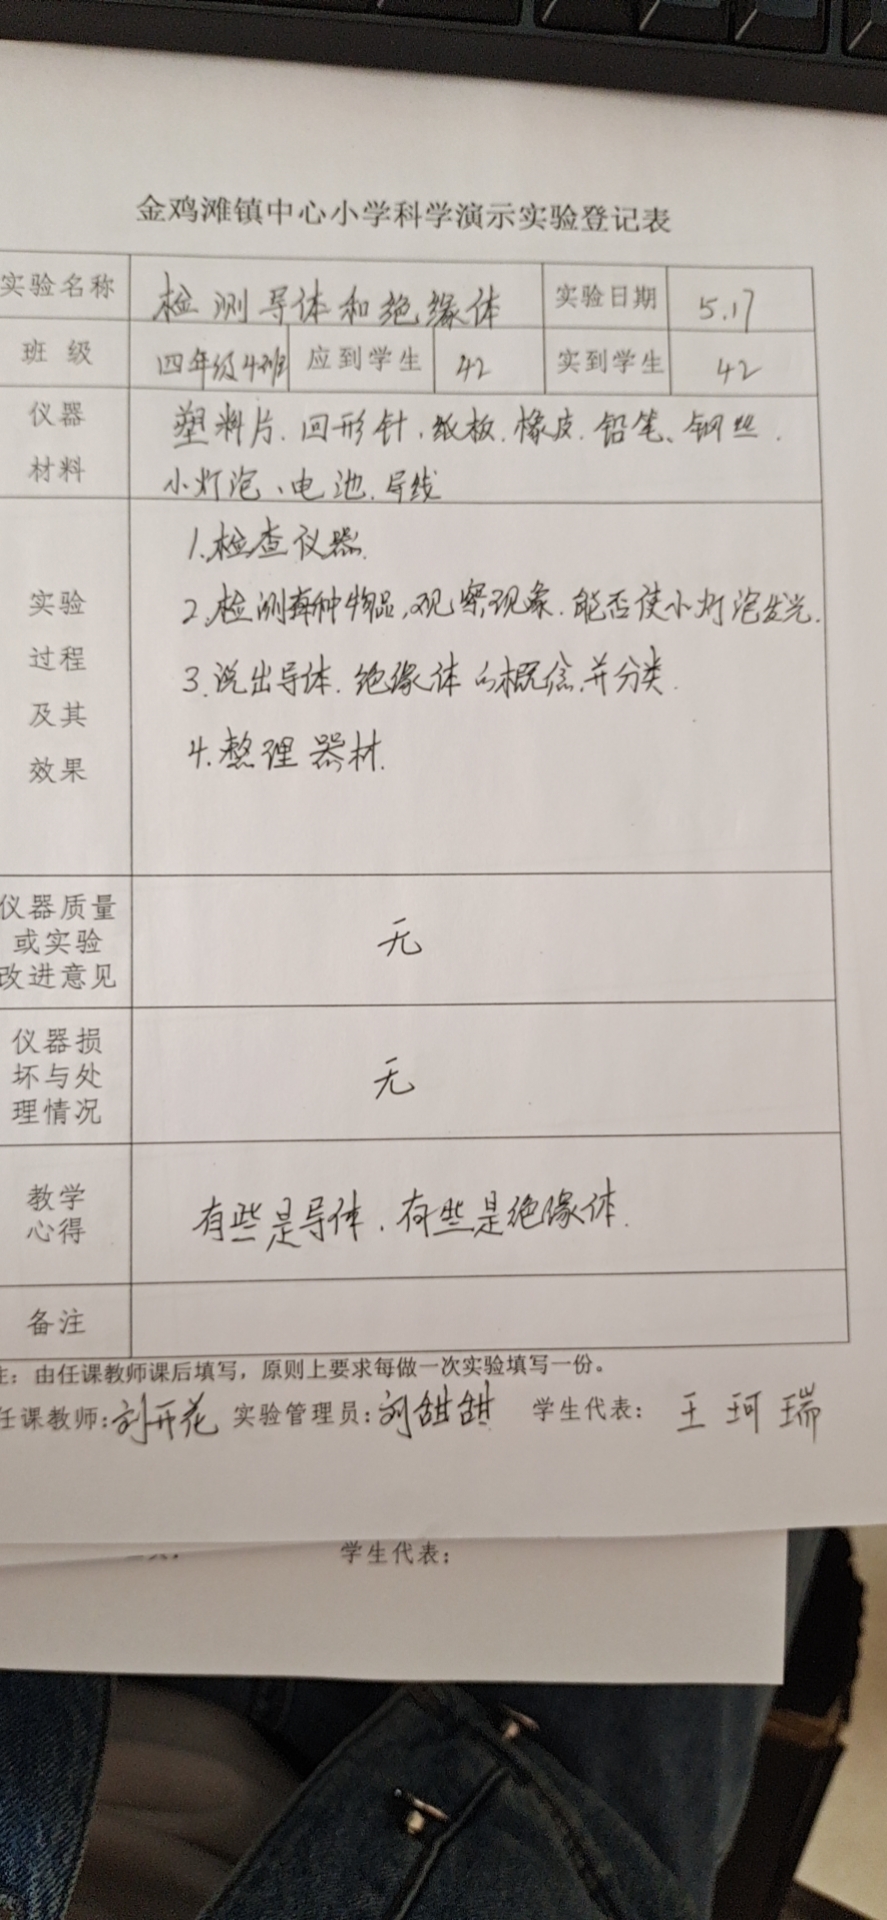 金鸡滩镇中心小学科学演示实验登记表
实验名称 检测导体和绝缘体 实验日期 5.17
班 级 四年级4班 应到学生 42 实到学生 42
仪器 塑料片.回形针.纸板.橡皮.铅笔、钢丝.
材料 小灯泡、电池.导线
1.检查仪器.
实验 2.检测每种物品,观察现象.能否使小灯泡发光.
过程 3.说出导体.绝缘体的概念,并分类.
及其 4.整理器材.
效果
仪器质量
或实验 无
改进意见
仪器损
坏与处 无
理情况
教学 有些是导体.有些是绝缘体.
心得
备注
注：由任课教师课后填写，原则上要求每做一次实验填写一份。
任课教师:刘开花 实验管理员:刘甜甜 学生代表： 王珂瑞
学生代表：